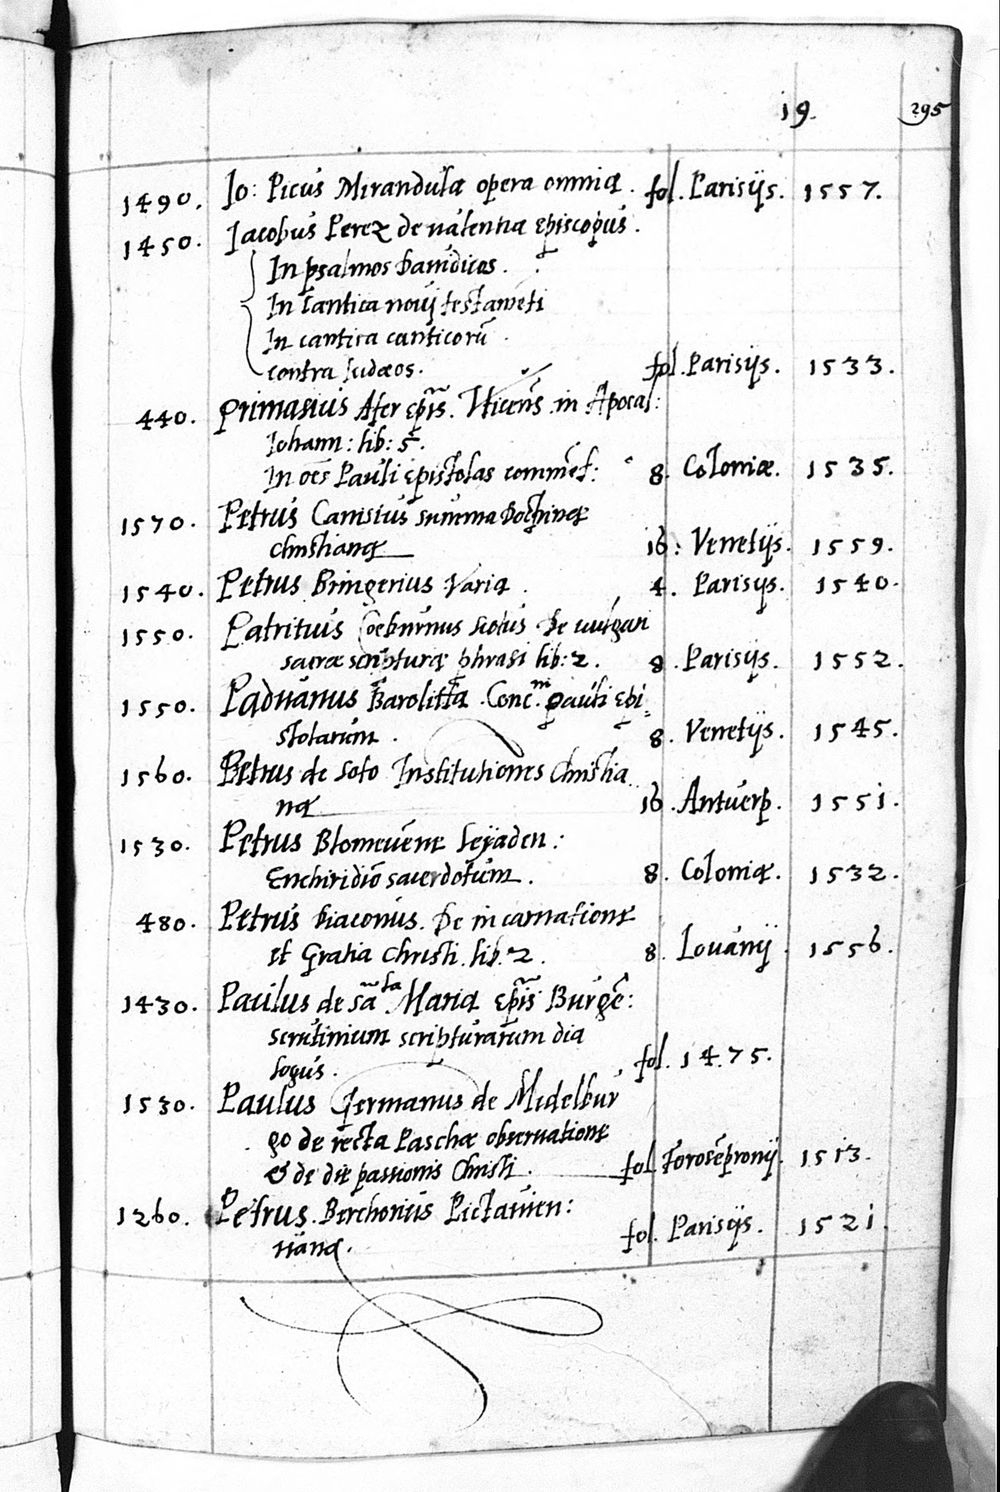 19. 295
1490. Jo: Picus Mirandulæ opera omnia. fol. Parisijs. 1557.
1450. Jacobus Perez de valentia episcopus.
In psalmos Dauidicos.
In Cantica noui testamēti
In cantica canticorū
contra Iudæos. fol. Parisijs. 1533.
440. Primasius Afer ep̄is. Vticens̄. in Apocal:
Johann: lib: 5.
In oēs Pauli Epistolas commēt: 8. Coloniæ. 1535.
1570. Petrus Canisius summa Doctrinæ
christianæ 16: Venetijs. 1559.
1540. Petrus Bringerius Varia. 4. Parisijs. 1540.
1550. Patritius Coeburnus scotus De uulgari
sacræ scripturæ phrasi lib: 2. 8. Parisijs. 1552.
1550. Paduanus Barolitta. Conc.m Pauli Epi
stolarum. 8. Venetijs. 1545.
1560. Petrus de Soto Institutiones Christia
næ 16. Antuerp. 1551.
1530. Petrus Blomeuēne leijaden:
Enchiridiō sacerdotum. 8. Coloniæ. 1532.
480. Petrus Diaconus. De incarnatione
et Gratia Christi. lib. 2. 8. Louanij. 1556.
1430. Paulus de Sāta Maria ep̄is Burgē:
scrutinium scripturarum dia
logus. fol. 1475.
1530. Paulus Germanus de Midelbur
go de recta Paschæ obseruatione
& de die passionis Christi. fol. Forosēpronij. 1513.
1260. Petrus. Berchorius Pictauien:
uana. fol. Parisijs. 1521.